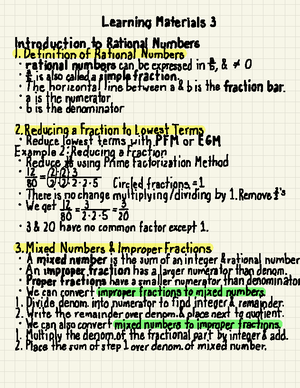 Learning Materials 3
Introduction to Rational Numbers
1. Definition of Rational Numbers
• rational numbers can be expressed in a/b, b ≠ 0
• a/b is also called a simple fraction.
• The horizontal line between a & b is the fraction bar.
• a is the numerator
• b is the denominator
2. Reducing a Fraction to Lowest Terms
• Reduce lowest terms with PFM or EGM
Example 2: Reducing a Fraction
• Reduce 12/80 using Prime Factorization Method
• 12/80 = (2)(2)3/(2)(2)2·2·5 Circled fractions = 1
• There is no change multiplying/dividing by 1. Remove 2/2's
• We get 12/80 = 3/2·2·5 = 3/20
• 3 & 20 have no common factor except 1.
3. Mixed Numbers & Improper Fractions
• A mixed number is the sum of an integer & rational number
• An improper fraction has a larger numerator than denom.
• Proper fractions have a smaller numerator than denominator
• We can convert improper fractions to mixed numbers.
1. Divide denom. into numerator to find integer & remainder.
2. Write the remainder over denom. & place next to quotient.
• We can also convert mixed numbers to improper fractions.
1. Multiply the denom. of the fractional part by integer & add.
2. Place the sum of step 1 over denom. of mixed number.